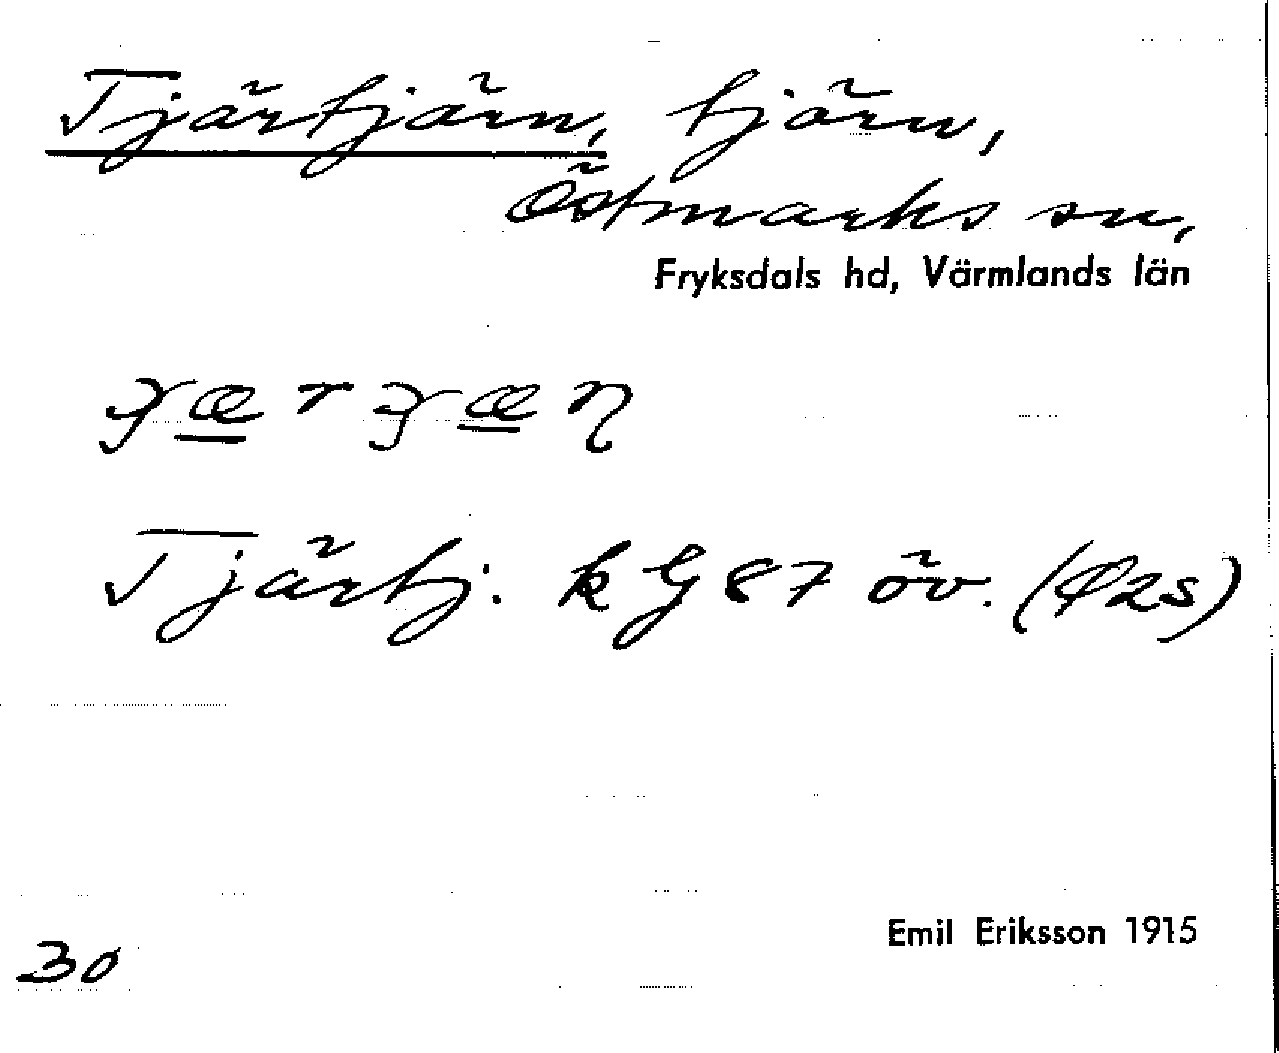 Tjärtjärn, tjärn,
Östmarks sn,
Fryksdals hd, Värmlands län
Tjärtj. k G 87 öv.
Emil Eriksson 1915
30